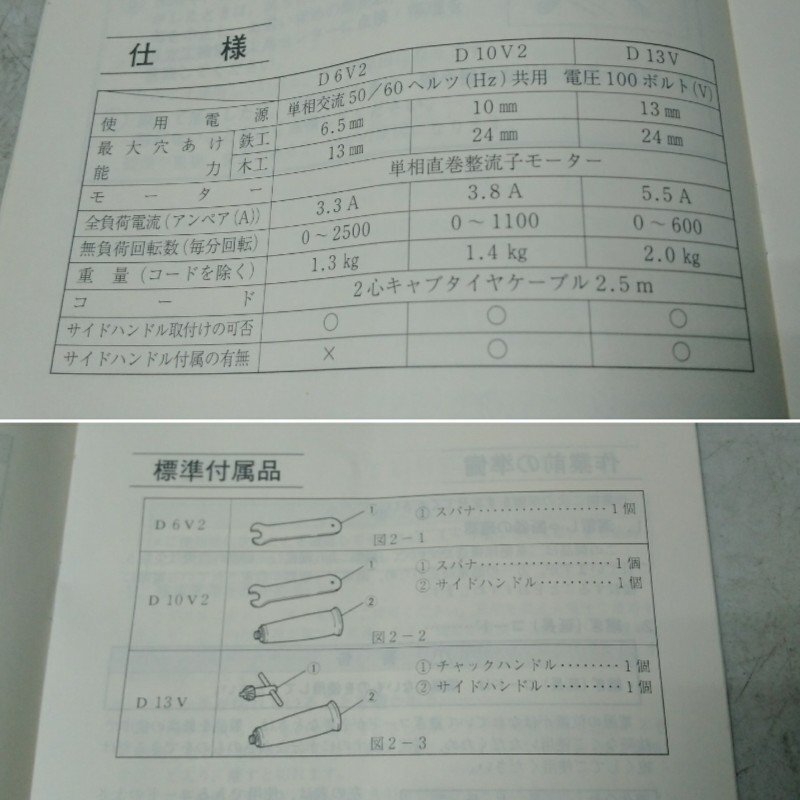 仕 様
D6V2 D10V2 D13V
使用電源 単相交流50/60ヘルツ(Hz)共用 電圧100ボルト(V)
最大穴あけ能力 鉄工 6.5㎜ 10㎜ 13㎜
木工 13㎜ 24㎜ 24㎜
モーター 単相直巻整流子モーター
全負荷電流(アンペア(A)) 3.3A 3.8A 5.5A
無負荷回転数(毎分回転) 0～2500 0～1100 0～600
重量(コードを除く) 1.3㎏ 1.4㎏ 2.0㎏
コード 2心キャブタイヤケーブル2.5m
サイドハンドル取付けの可否 ○ ○ ○
サイドハンドル付属の有無 × ○ ○
標準付属品
D6V2
1
①スパナ··················1個
図2-1
D10V2
1
2
①スパナ··················1個
②サイドハンドル··········1個
図2-2
D13V
①
2
①チャックハンドル········1個
②サイドハンドル··········1個
図2-3
作業前の準備